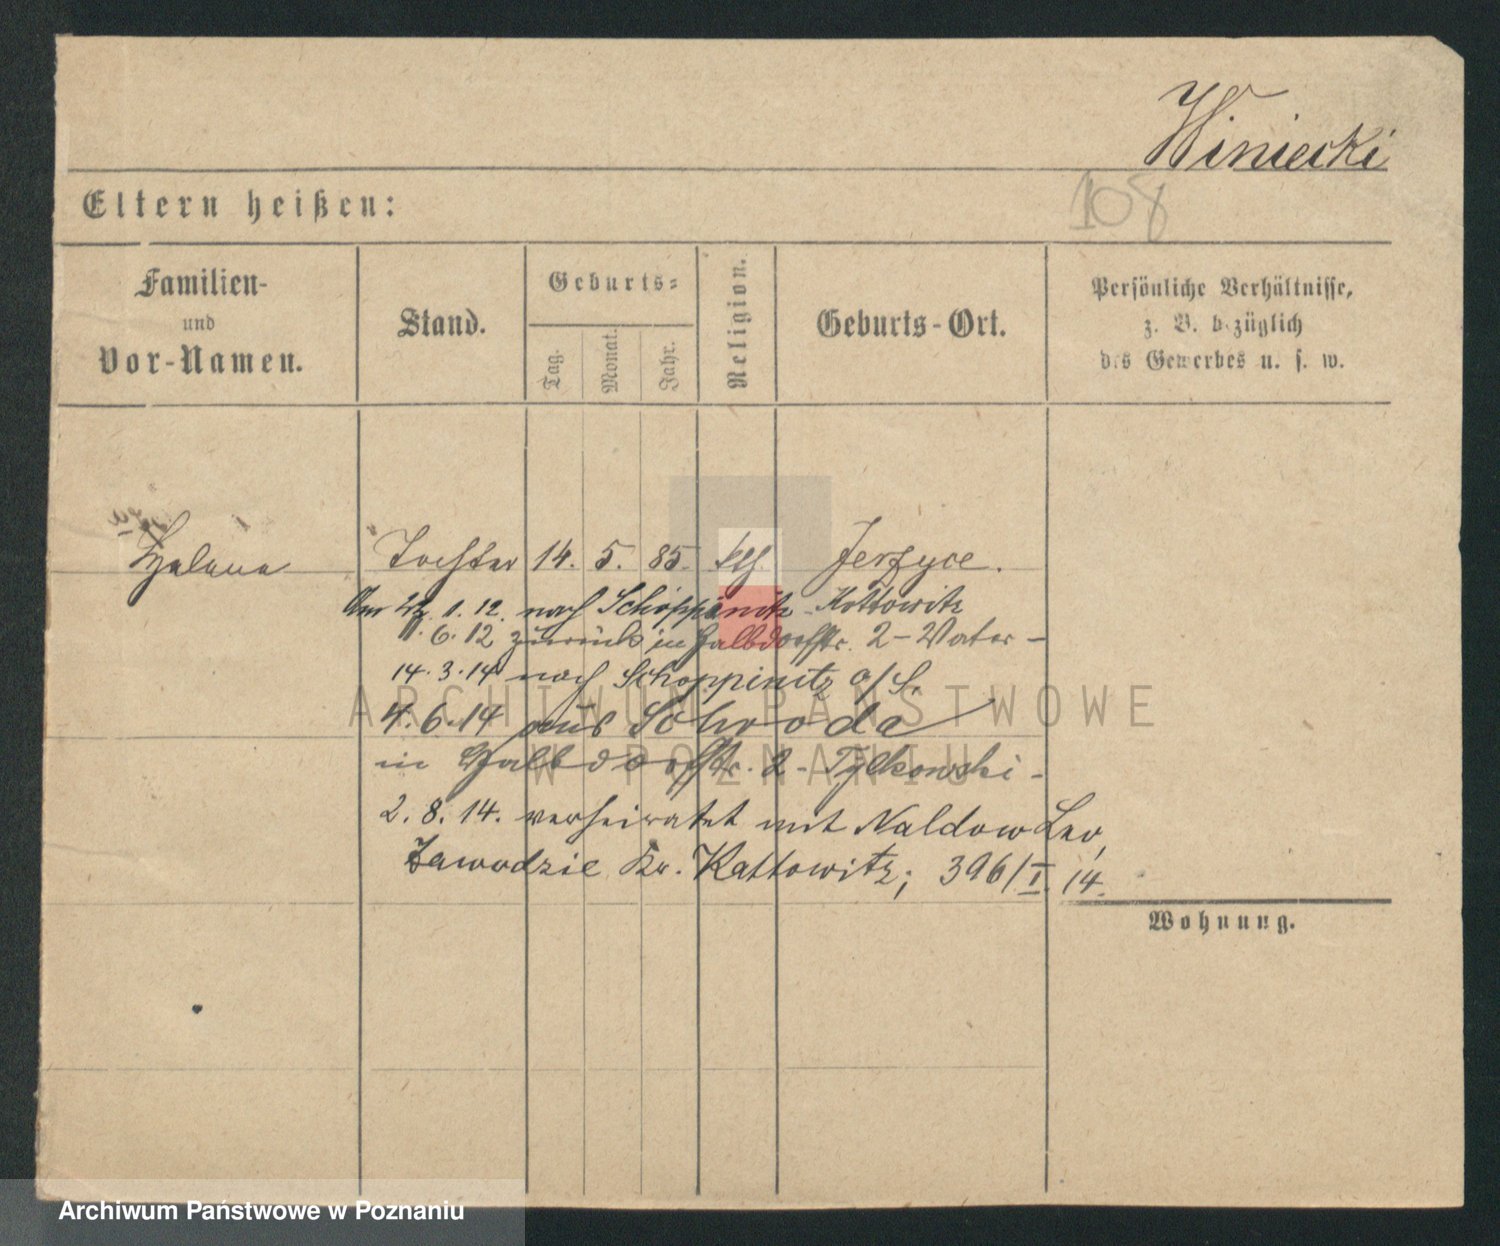 Winiecki
108
Eltern heißen:
Familien-
und
Vor-Namen.
Stand.
Geburts-
Tag.
Monat.
Jahr.
Religion.
Geburts-Ort.
Persönliche Verhältnisse,
z. B. bezüglich
des Gewerbes u. s. w.
Helena Tochter 14. 5. 85. kth. Jerzyce.
1. 12. nach Schoppinitz - Kattowitz
1. 6. 12 zurück in Halbdorfstr. 2 - Vater -
14. 3. 14 nach Schoppinitz O/S.
4. 6. 14 aus Schroda
in Halbdorfstr. 2 - Tylkowski -
2. 8. 14. verheiratet mit Naldow Leo,
Zawodzie Kr. Kattowitz; 396/I. 14.
Wohnung.
ARCHIWUM PAŃSTWOWE
W POZNANIU
Archiwum Państwowe w Poznaniu